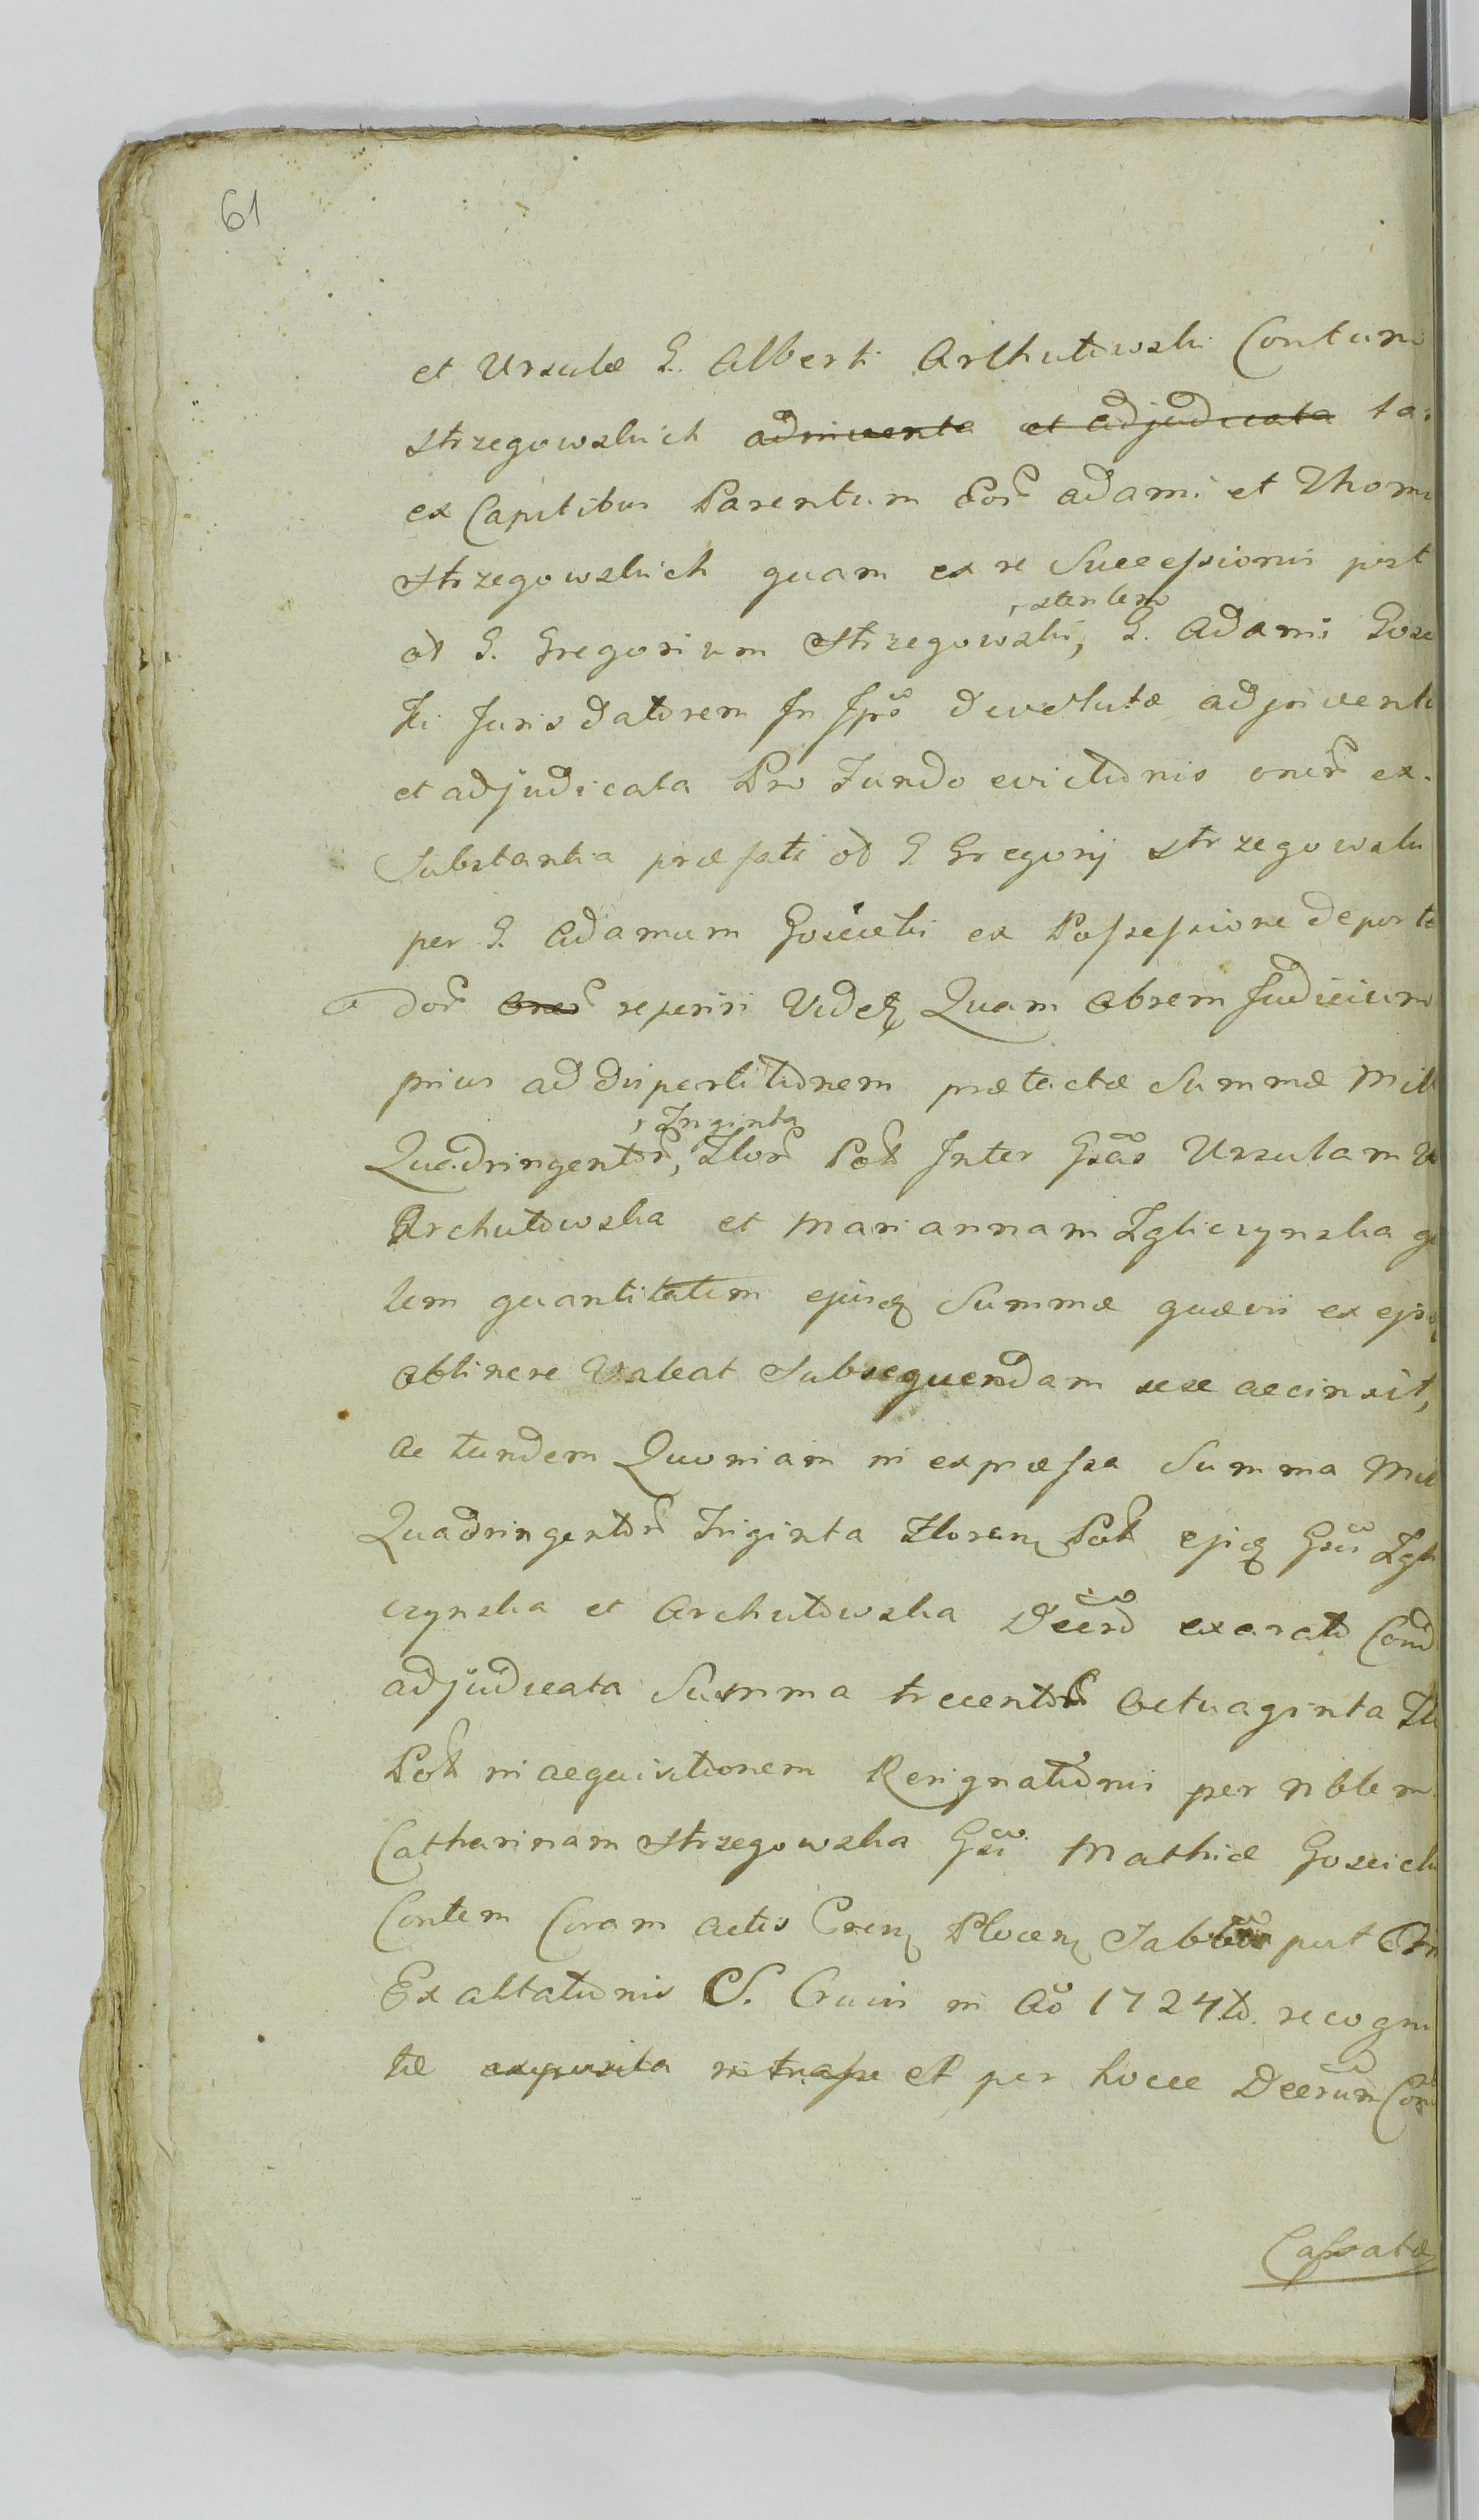 61
et Ursulæ G. Alberti Archutowski Contum
Strzegowskich adinventa et adjudicata ta
ex Capitibus Parentum Eor̃ Adami et Thom
Strzegowskich quam ex re Successionis post
stentem
od G. Gregorium Strzegowski, G. Adami Gose
ki Juris datorem In Ips̃o devolutæ adinvent
et adjudicata Pro Fundo evictionis ex
Substantia præfati od G Gregorij Strzegowski
per G. Adamum Gosicki ex Possessione deporta
dor̃ reperiri Videt Quam Obrem Judicium
prius ad dispartitionem prætactæ Summæ Mill
Triginta
Quadringentor̃, Flor̃ Pol Inter Gsas Ursulam
Archutowska et Mariannam Zgliczynska
lem quantitatem ejusq Summæ quævis ex
obtinere Valeat Subsequendam sese accinxit,
ac tandem Quoniam in expressa Summa Mil
Quadringentor̃ Triginta Floren Pol Gsis Zgli
czynska et Archutowska Decrõ exarato Cond
adjudicata Summa trecentor̃ Octuaginta Fl
Pol in acquisitionem Resignationis per nblem
Catharinam Strzegowska Gsi Mathiæ Gosicki
Contem Coram actis Plocen Sabbõ post
Exaltationis S. Crucis in Ao 1724to. recogni
tæ exposita intrasse et per hocce Decrum Con
Cassatæ